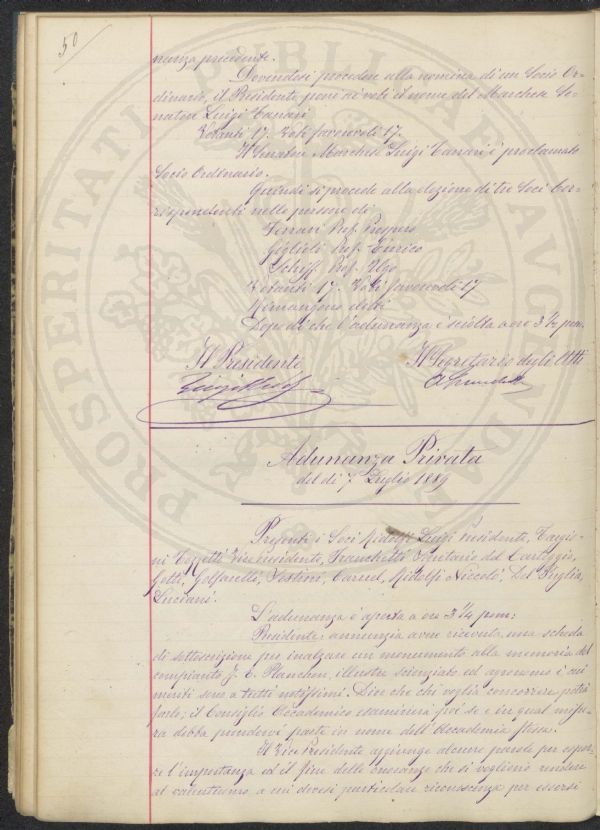 50
nanza precedente.
Dovendosi procedere alla nomina di un Socio Or-
dinario, il Presidente pone ai voti il nome del Marchese Se-
natore Luigi Tanari
Votanti 17. Voti favorevoli 17.
Il Senatore Marchese Luigi Tanari è proclamato
Socio Ordinario.
Quindi si procede alla elezione di tre Soci Cor-
rispondenti nelle persone di
Ferrari Prof. Prospero
Giglioli Prof. Enrico
Schiff Prof. Ugo
Votanti 17. Voti favorevoli 17
Rimangono eletti
Dopo di che l'adunanza è sciolta a ore 3 1/2 pom.
Il Presidente Il Segretario degli Atti
Adunanza Privata
del dì 7 Luglio 1889
Presenti i Soci Ridolfi Luigi Presidente, Targio-
ni Tozzetti Vice Presidente, Franchetti, Santario del
Gotti, Golfarelli, Vestrini, Caruel, Ridolfi Niccolò, Del Puglia,
Luciani.
L'adunanza è aperta a ore 3 1/4 pom:
Presidente: annunzia avere ricevuta una scheda
di sottoscrizione per inalzare un monumento alla memoria del
compianto J. E. Planchon, illustre scienziato ed agronomo i cui
meriti sono a tutti notissimi. Dice che chi voglia concorrere potrà
farlo; il Consiglio Accademico esaminerà poi se e in qual misu-
ra debba prendervi parte in nome dell'Accademia stessa.
Il Vice Presidente aggiunge alcune parole per espor-
re l'importanza ed il fine delle onoranze che si vogliono rendere
al valentuomo a cui devesi particolare riconoscenza per essersi
PROSPERITATI PUBLICAE AUGENDAE